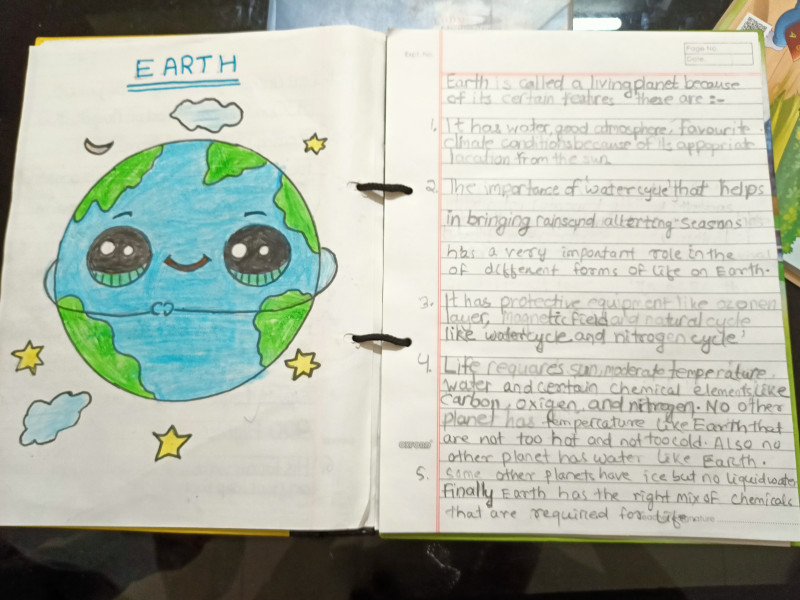 EARTH
Page No.
Date:
Expt. No.
Earth is called a living planet because
of its certain featres these are :-
1. It has water, good atmosphere, favourite
climate conditions because of its appopriate
location from the sun
2. The importance of water cycle that helps
in bringing rains and alterting seasons
has a very important role in the
of different forms of life on Earth.
3. It has protective equipment like ozonen
layer, magnetic field and natural cycle
like watercycle and nitrogen cycle'
4. Life requares sun, moderate temperature,
water and certain chemical elements like
carbon, oxigen, and nitrogen. No other
planet has temperature like Earth that
are not too hot and not too cold. Also no
other planet has water like Earth.
5. Some other planets have ice but no liquid water
Finally Earth has the right mix of chemicals
that are required for life